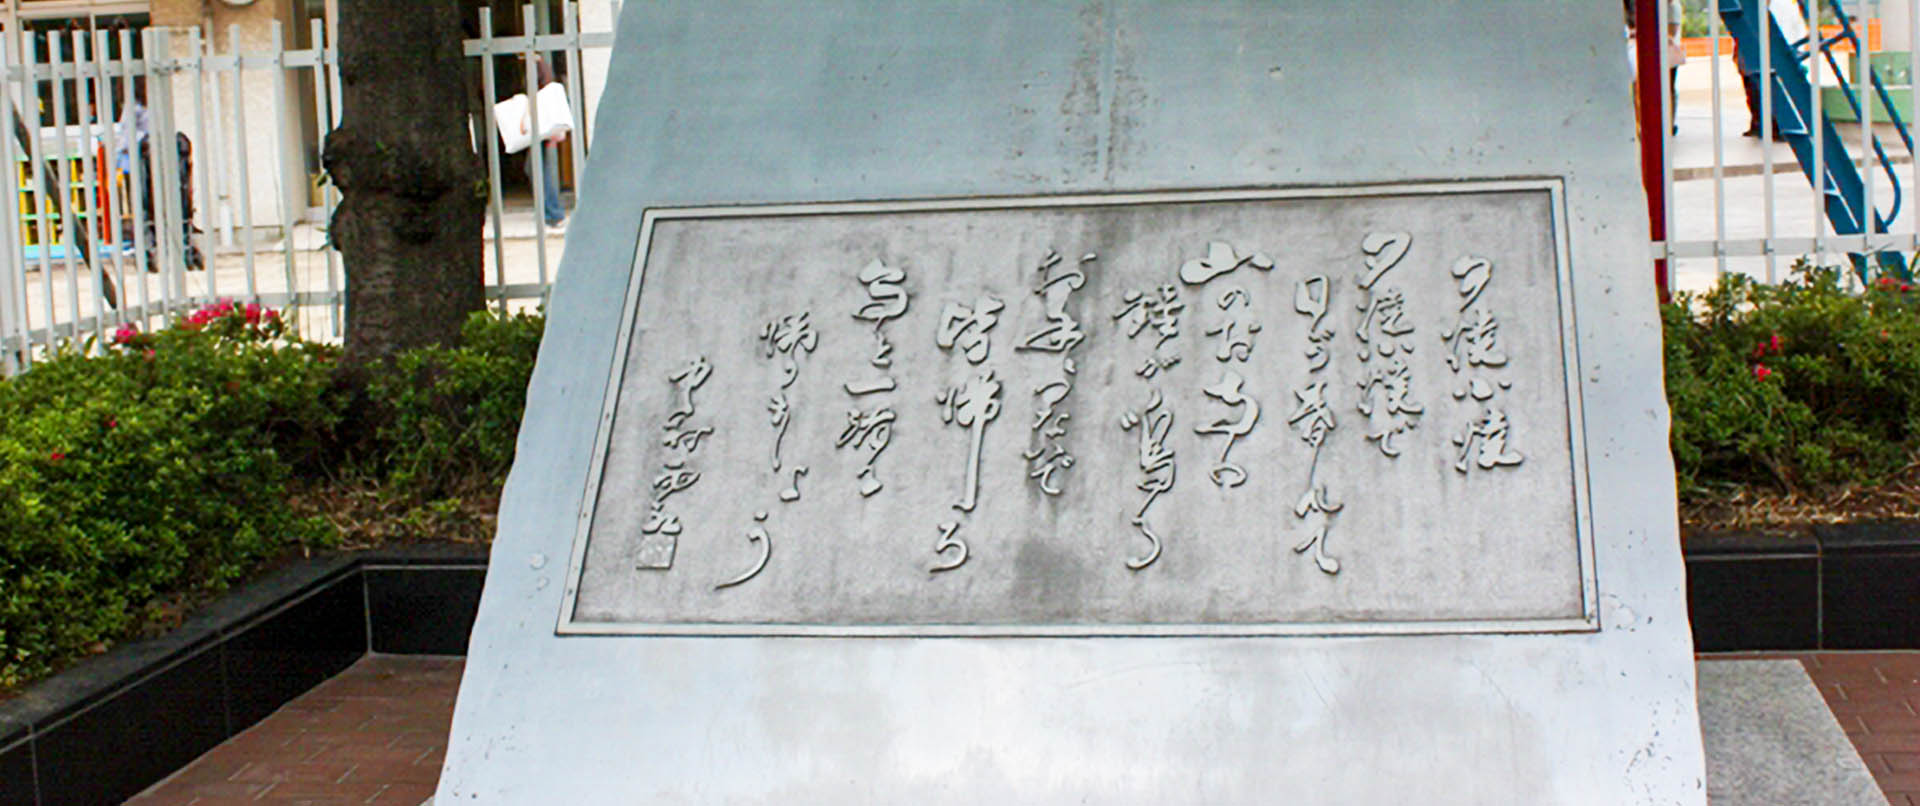 夕焼小焼
夕焼小焼で
日が暮れて
山のお寺の
鐘が鳴る
お手々つないで
皆帰ろ
烏と一緒に
帰りましょう
中村雨紅